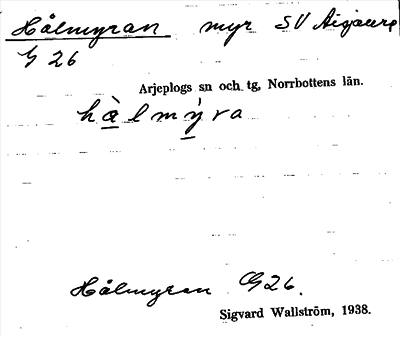 Hålmyran myr SV Aisjaure
G 26
Arjeplogs sn och tg, Norrbottens län.
hàlmýra
Hålmyran G26.
Sigvard Wallström, 1938.